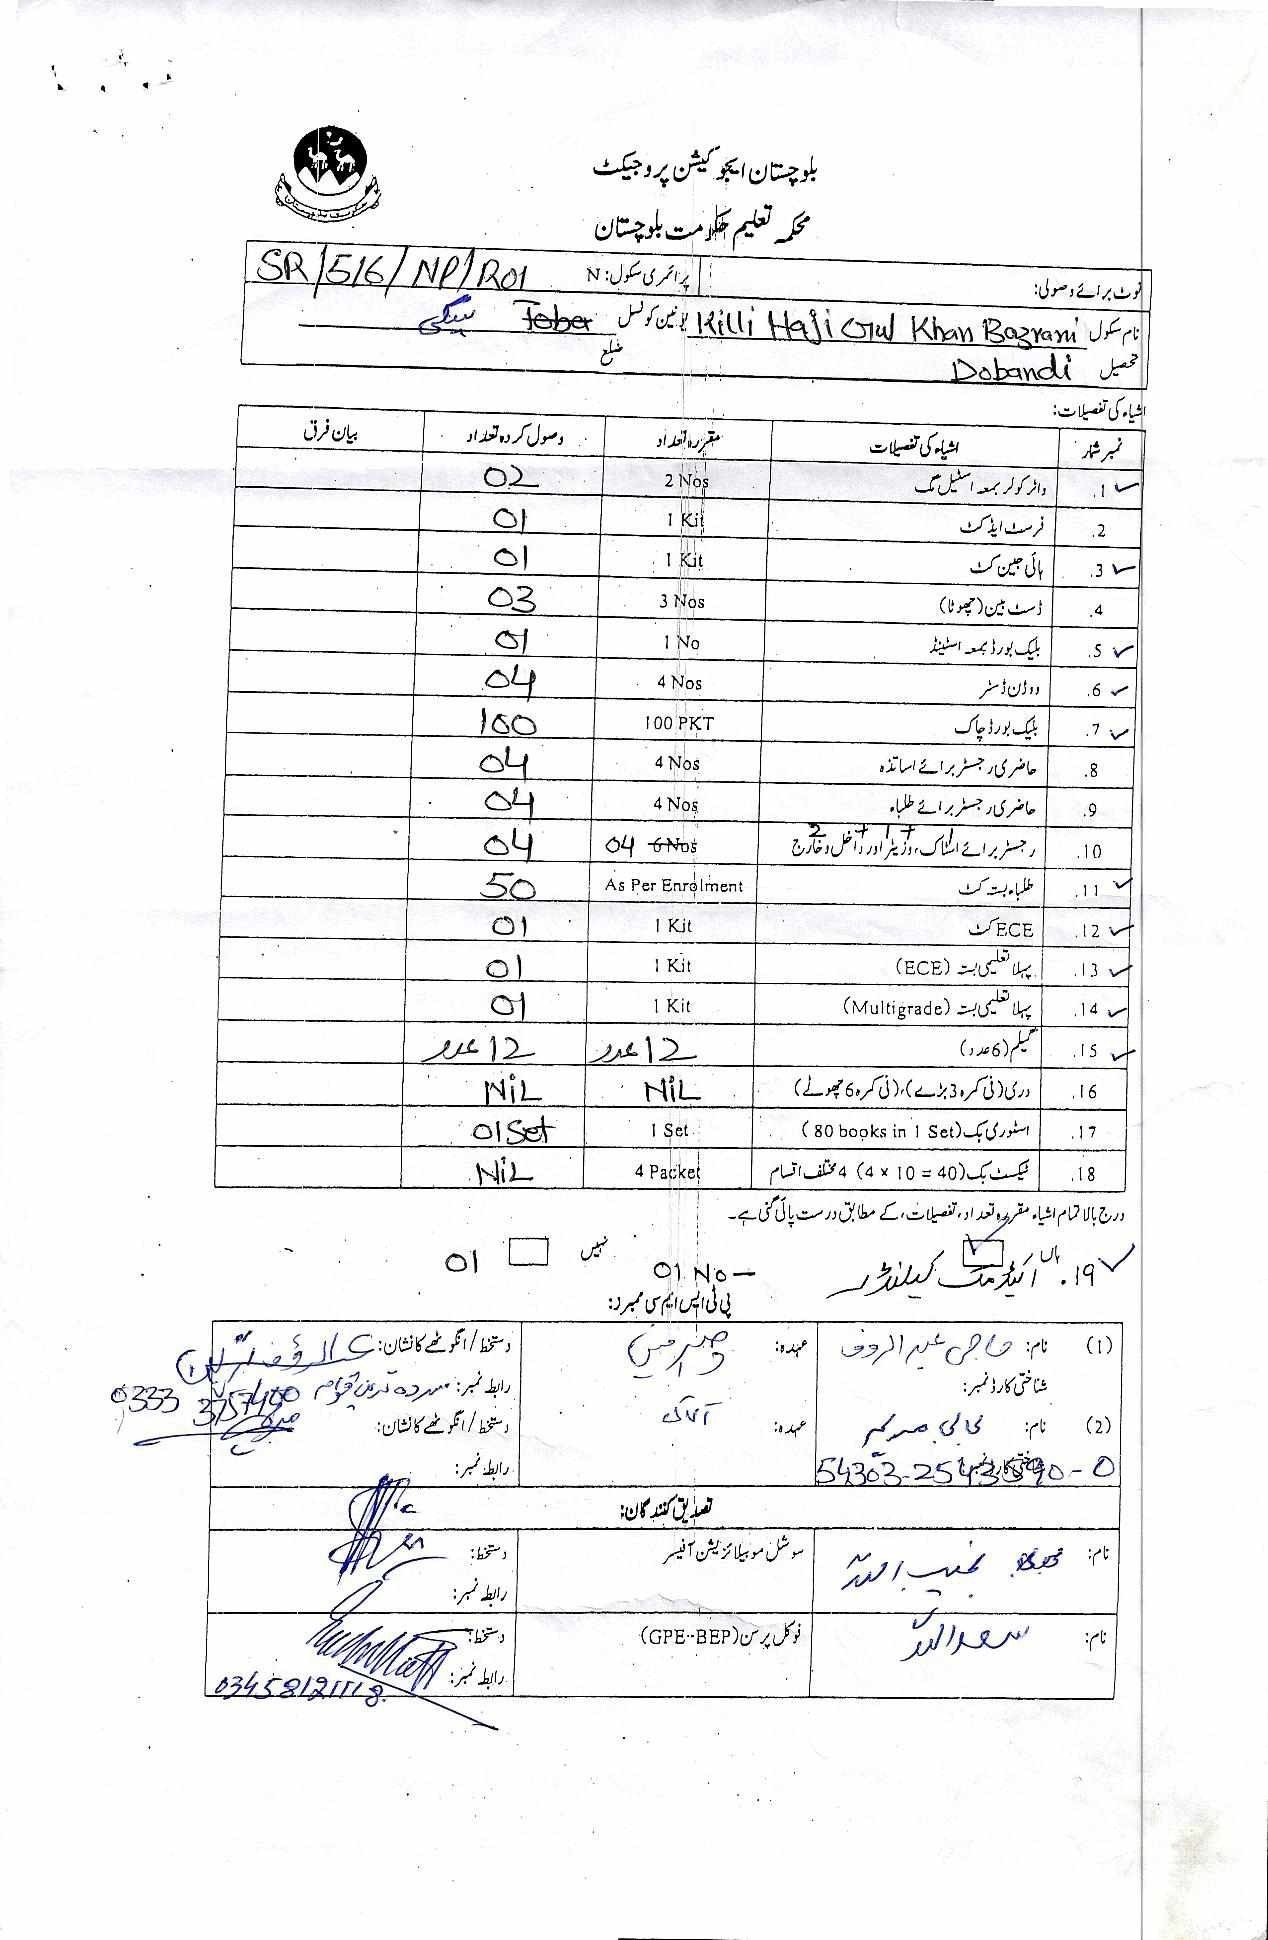 بلوچستان ایجوکیشن پروجیکٹ
محکمہ تعلیم حکومت بلوچستان
نوٹ برائے وصولی: پرائمری سکول: N SR/516/NP/R01
نام سکول Killi Haji Gul Khan Bazrani یونین کونسل Tobar
تحصیل Dobandi ضلع
اشیاء کی تفصیلات:
نمبر شمار اشیاء کی تفصیلات مقررہ تعداد وصول کردہ تعداد بیان فرق
1. واٹر کولر بمعہ اسٹیل مگ 2 Nos 02
2. فرسٹ ایڈ کٹ 1 Kit 01
3. ہائی جین کٹ 1 Kit 01
4. ڈسٹ بین (چھوٹا) 3 Nos 03
5. بلیک بورڈ بمعہ اسٹینڈ 1 No 01
6. ووڈن ڈسٹر 4 Nos 04
7. بلیک بورڈ چاک 100 PKT 100
8. حاضری رجسٹر برائے اساتذہ 4 Nos 04
9. حاضری رجسٹر برائے طلباء 4 Nos 04
10. رجسٹر برائے اسٹاک، وزیٹر اور داخل و خارج 2 + 1 + 1 6 Nos 04 04
11. طلباء بستہ کٹ As Per Enrolment 50
12. ECE کٹ 1 Kit 01
13. پہلا تعلیمی بستہ (ECE) 1 Kit 01
14. پہلا تعلیمی بستہ (Multigrade) 1 Kit 01
15. گلیم (6 عدد) 12 عدد 12 عدد
16. دری (فی کمرہ 3 بڑے)، (فی کمرہ 6 چھوٹے) NiL NiL
17. اسٹوری بک (80 books in 1 Set) 1 Set 01 Set
18. ٹیکسٹ بک (4 x 10 = 40) 4 مختلف اقسام 4 Packet NiL
درج بالا تمام اشیاء مقررہ تعداد، تفصیلات، کے مطابق درست پائی گئی ہے۔
ہاں نہیں
19. اکیڈمک کیلنڈر 01 No - 01
پی ٹی ایس ایم سی ممبرز:
(1) نام: حاجی عبد الروف عہدہ: چئرمین دستخط / انگوٹھے کا نشان:
شناختی کارڈ نمبر: رابطہ نمبر: 0333 3757400
(2) نام: عہدہ: دستخط / انگوٹھے کا نشان:
شناختی کارڈ نمبر: 54303-2543590-0 رابطہ نمبر:
تصدیق کنندگان:
نام: نجیب اللہ سوشل موبیلائزیشن آفیسر دستخط:
رابطہ نمبر:
نام: سعد اللہ فوکل پرسن (GPE-BEP) دستخط:
رابطہ نمبر: 03458121118